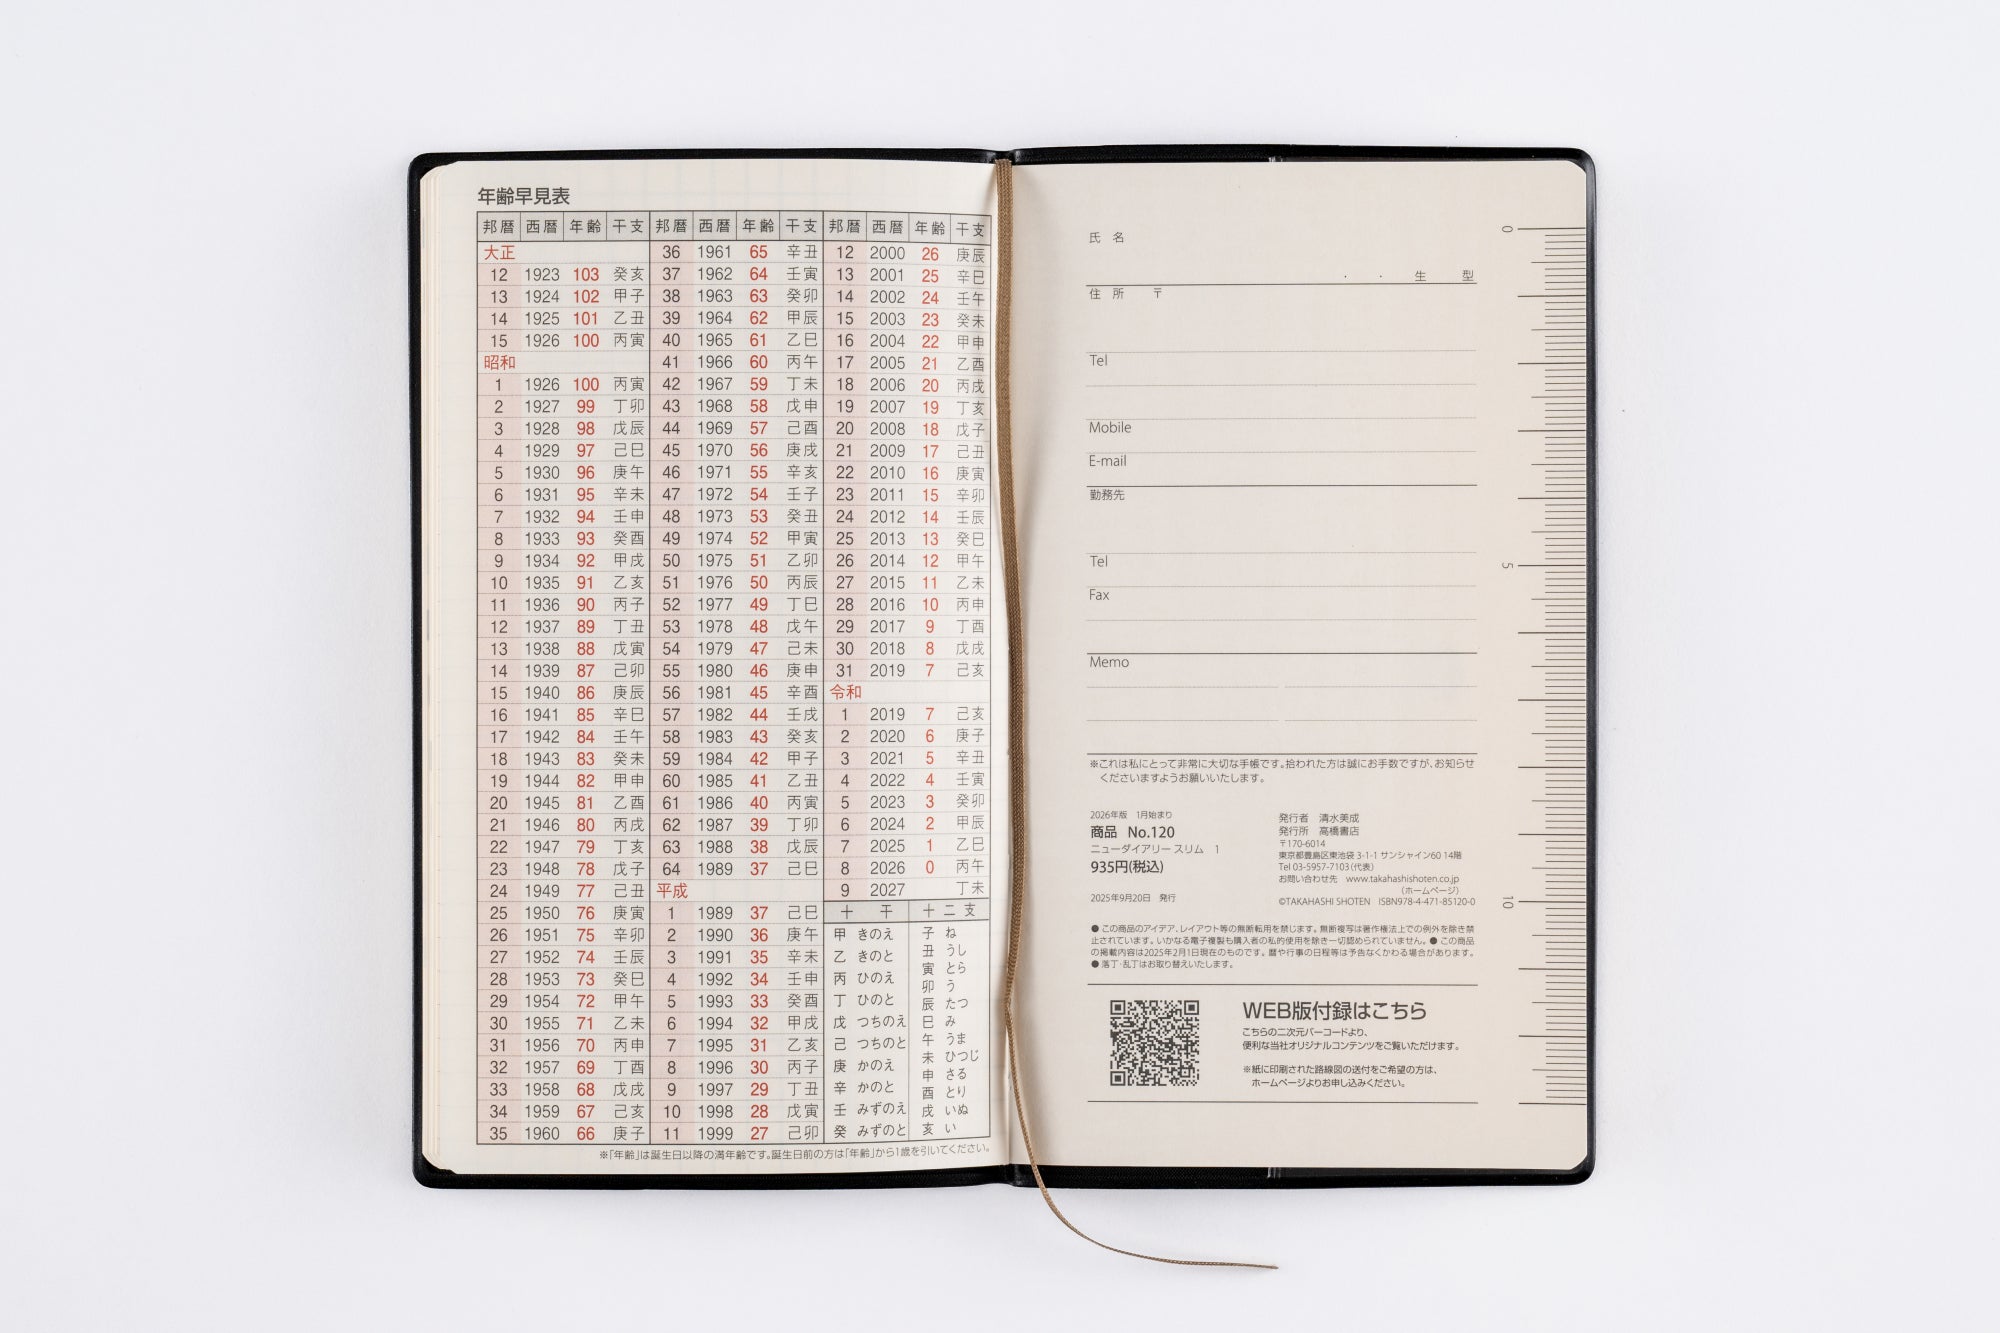 年齢早見表
邦暦 西暦 年齢 干支 邦暦 西暦 年齢 干支 邦暦 西暦 年齢 干支
大正
12 1923 103 癸亥
13 1924 102 甲子
14 1925 101 乙丑
15 1926 100 丙寅
昭和
1 1926 100 丙寅
2 1927 99 丁卯
3 1928 98 戊辰
4 1929 97 己巳
5 1930 96 庚午
6 1931 95 辛未
7 1932 94 壬申
8 1933 93 癸酉
9 1934 92 甲戌
10 1935 91 乙亥
11 1936 90 丙子
12 1937 89 丁丑
13 1938 88 戊寅
14 1939 87 己卯
15 1940 86 庚辰
16 1941 85 辛巳
17 1942 84 壬午
18 1943 83 癸未
19 1944 82 甲申
20 1945 81 乙酉
21 1946 80 丙戌
22 1947 79 丁亥
23 1948 78 戊子
24 1949 77 己丑
25 1950 76 庚寅
26 1951 75 辛卯
27 1952 74 壬辰
28 1953 73 癸巳
29 1954 72 甲午
30 1955 71 乙未
31 1956 70 丙申
32 1957 69 丁酉
33 1958 68 戊戌
34 1959 67 己亥
35 1960 66 庚子
36 1961 65 辛丑
37 1962 64 壬寅
38 1963 63 癸卯
39 1964 62 甲辰
40 1965 61 乙巳
41 1966 60 丙午
42 1967 59 丁未
43 1968 58 戊申
44 1969 57 己酉
45 1970 56 庚戌
46 1971 55 辛亥
47 1972 54 壬子
48 1973 53 癸丑
49 1974 52 甲寅
50 1975 51 乙卯
51 1976 50 丙辰
52 1977 49 丁巳
53 1978 48 戊午
54 1979 47 己未
55 1980 46 庚申
56 1981 45 辛酉
57 1982 44 壬戌
58 1983 43 癸亥
59 1984 42 甲子
60 1985 41 乙丑
61 1986 40 丙寅
62 1987 39 丁卯
63 1988 38 戊辰
64 1989 37 己巳
平成
1 1989 37 己巳
2 1990 36 庚午
3 1991 35 辛未
4 1992 34 壬申
5 1993 33 癸酉
6 1994 32 甲戌
7 1995 31 乙亥
8 1996 30 丙子
9 1997 29 丁丑
10 1998 28 戊寅
11 1999 27 己卯
12 2000 26 庚辰
13 2001 25 辛巳
14 2002 24 壬午
15 2003 23 癸未
16 2004 22 甲申
17 2005 21 乙酉
18 2006 20 丙戌
19 2007 19 丁亥
20 2008 18 戊子
21 2009 17 己丑
22 2010 16 庚寅
23 2011 15 辛卯
24 2012 14 壬辰
25 2013 13 癸巳
26 2014 12 甲午
27 2015 11 乙未
28 2016 10 丙申
29 2017 9 丁酉
30 2018 8 戊戌
31 2019 7 己亥
令和
1 2019 7 己亥
2 2020 6 庚子
3 2021 5 辛丑
4 2022 4 壬寅
5 2023 3 癸卯
6 2024 2 甲辰
7 2025 1 乙巳
8 2026 0 丙午
9 2027 丁未
十干
甲 きのえ
乙 きのと
丙 ひのえ
丁 ひのと
戊 つちのえ
己 つちのと
庚 かのえ
辛 かのと
壬 みずのえ
癸 みずのと
十二支
子 ね
丑 うし
寅 とら
卯 う
辰 たつ
巳 み
午 うま
未 ひつじ
申 さる
酉 とり
戌 いぬ
亥 い
※「年齢」は誕生日以降の満年齢です。誕生日前の方は「年齢」から1歳を引いてください。
氏 名
・ ・ 生 型
住 所 〒
Tel
Mobile
E-mail
勤務先
Tel
Fax
Memo
※これは私にとって非常に大切な手帳です。拾われた方は誠にお手数ですが、お知らせ
くださいますようお願いいたします。
2026年版 1月始まり
商品 No.120
ニューダイアリー スリム 1
935円(税込)
2025年9月20日 発行
発行者 清水美成
発行所 高橋書店
〒170-6014
東京都豊島区東池袋 3-1-1 サンシャイン60 14階
Tel 03-5957-7103(代表)
お問い合わせ先 www.takahashishoten.co.jp
(ホームページ)
©TAKAHASHI SHOTEN ISBN978-4-471-85120-0
● この商品のアイデア、レイアウト等の無断転用を禁じます。無断複写は著作権法上での例外を除き禁
止されています。いかなる電子複製も購入者の私的使用を除き一切認められていません。● この商品
の掲載内容は2025年2月1日現在のものです。暦や行事の日程等は予告なくかわる場合があります。
● 落丁・乱丁はお取り替えいたします。
WEB版付録はこちら
こちらの二次元バーコードより、
便利な当社オリジナルコンテンツをご覧いただけます。
※紙に印刷された路線図の送付をご希望の方は、
ホームページよりお申し込みください。
0
5
10